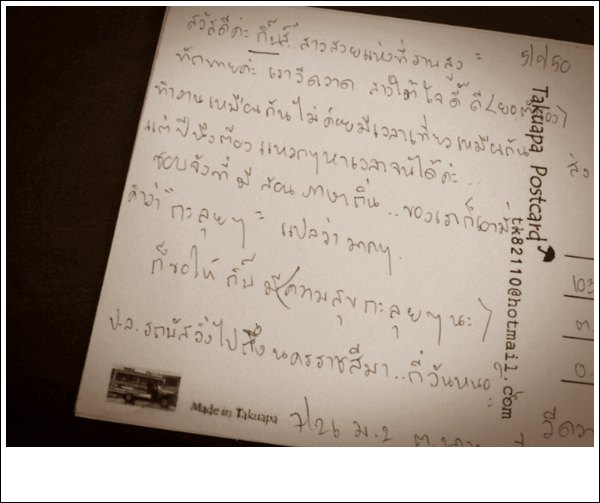 สวัสดีค่ะ กิ๊บส์.. สาวสวยแห่งที่ราบสูง
5/9/50
ทักทายค่ะ เรารีดวาด สาวใต้ใจดี๊ ดี (ยอตัวเอง)
ทำงานเหมือนกันไม่ค่อยมีเวลาเที่ยวเหมือนกัน
แต่ปีนึงต้อง แหวกๆหาเวลาจนได้ค่ะ...
ชอบจังที่ มี สอน ภาษาถิ่น ..ของเราก็เอามั่ง
คำว่า "กะลุยๆ" แปลว่า มากๆ
ก็ขอให้ กิ๊บ มี (ความสุข กะลุยๆ นะ)
ป.ล. รถบัสวิ่งไปถึง นครราชสีมา.. กี่วันหนอ
Takuapa Postcard
tk82110@hotmail.com
ส่ง
Made in Takuapa
7/26 ม.2